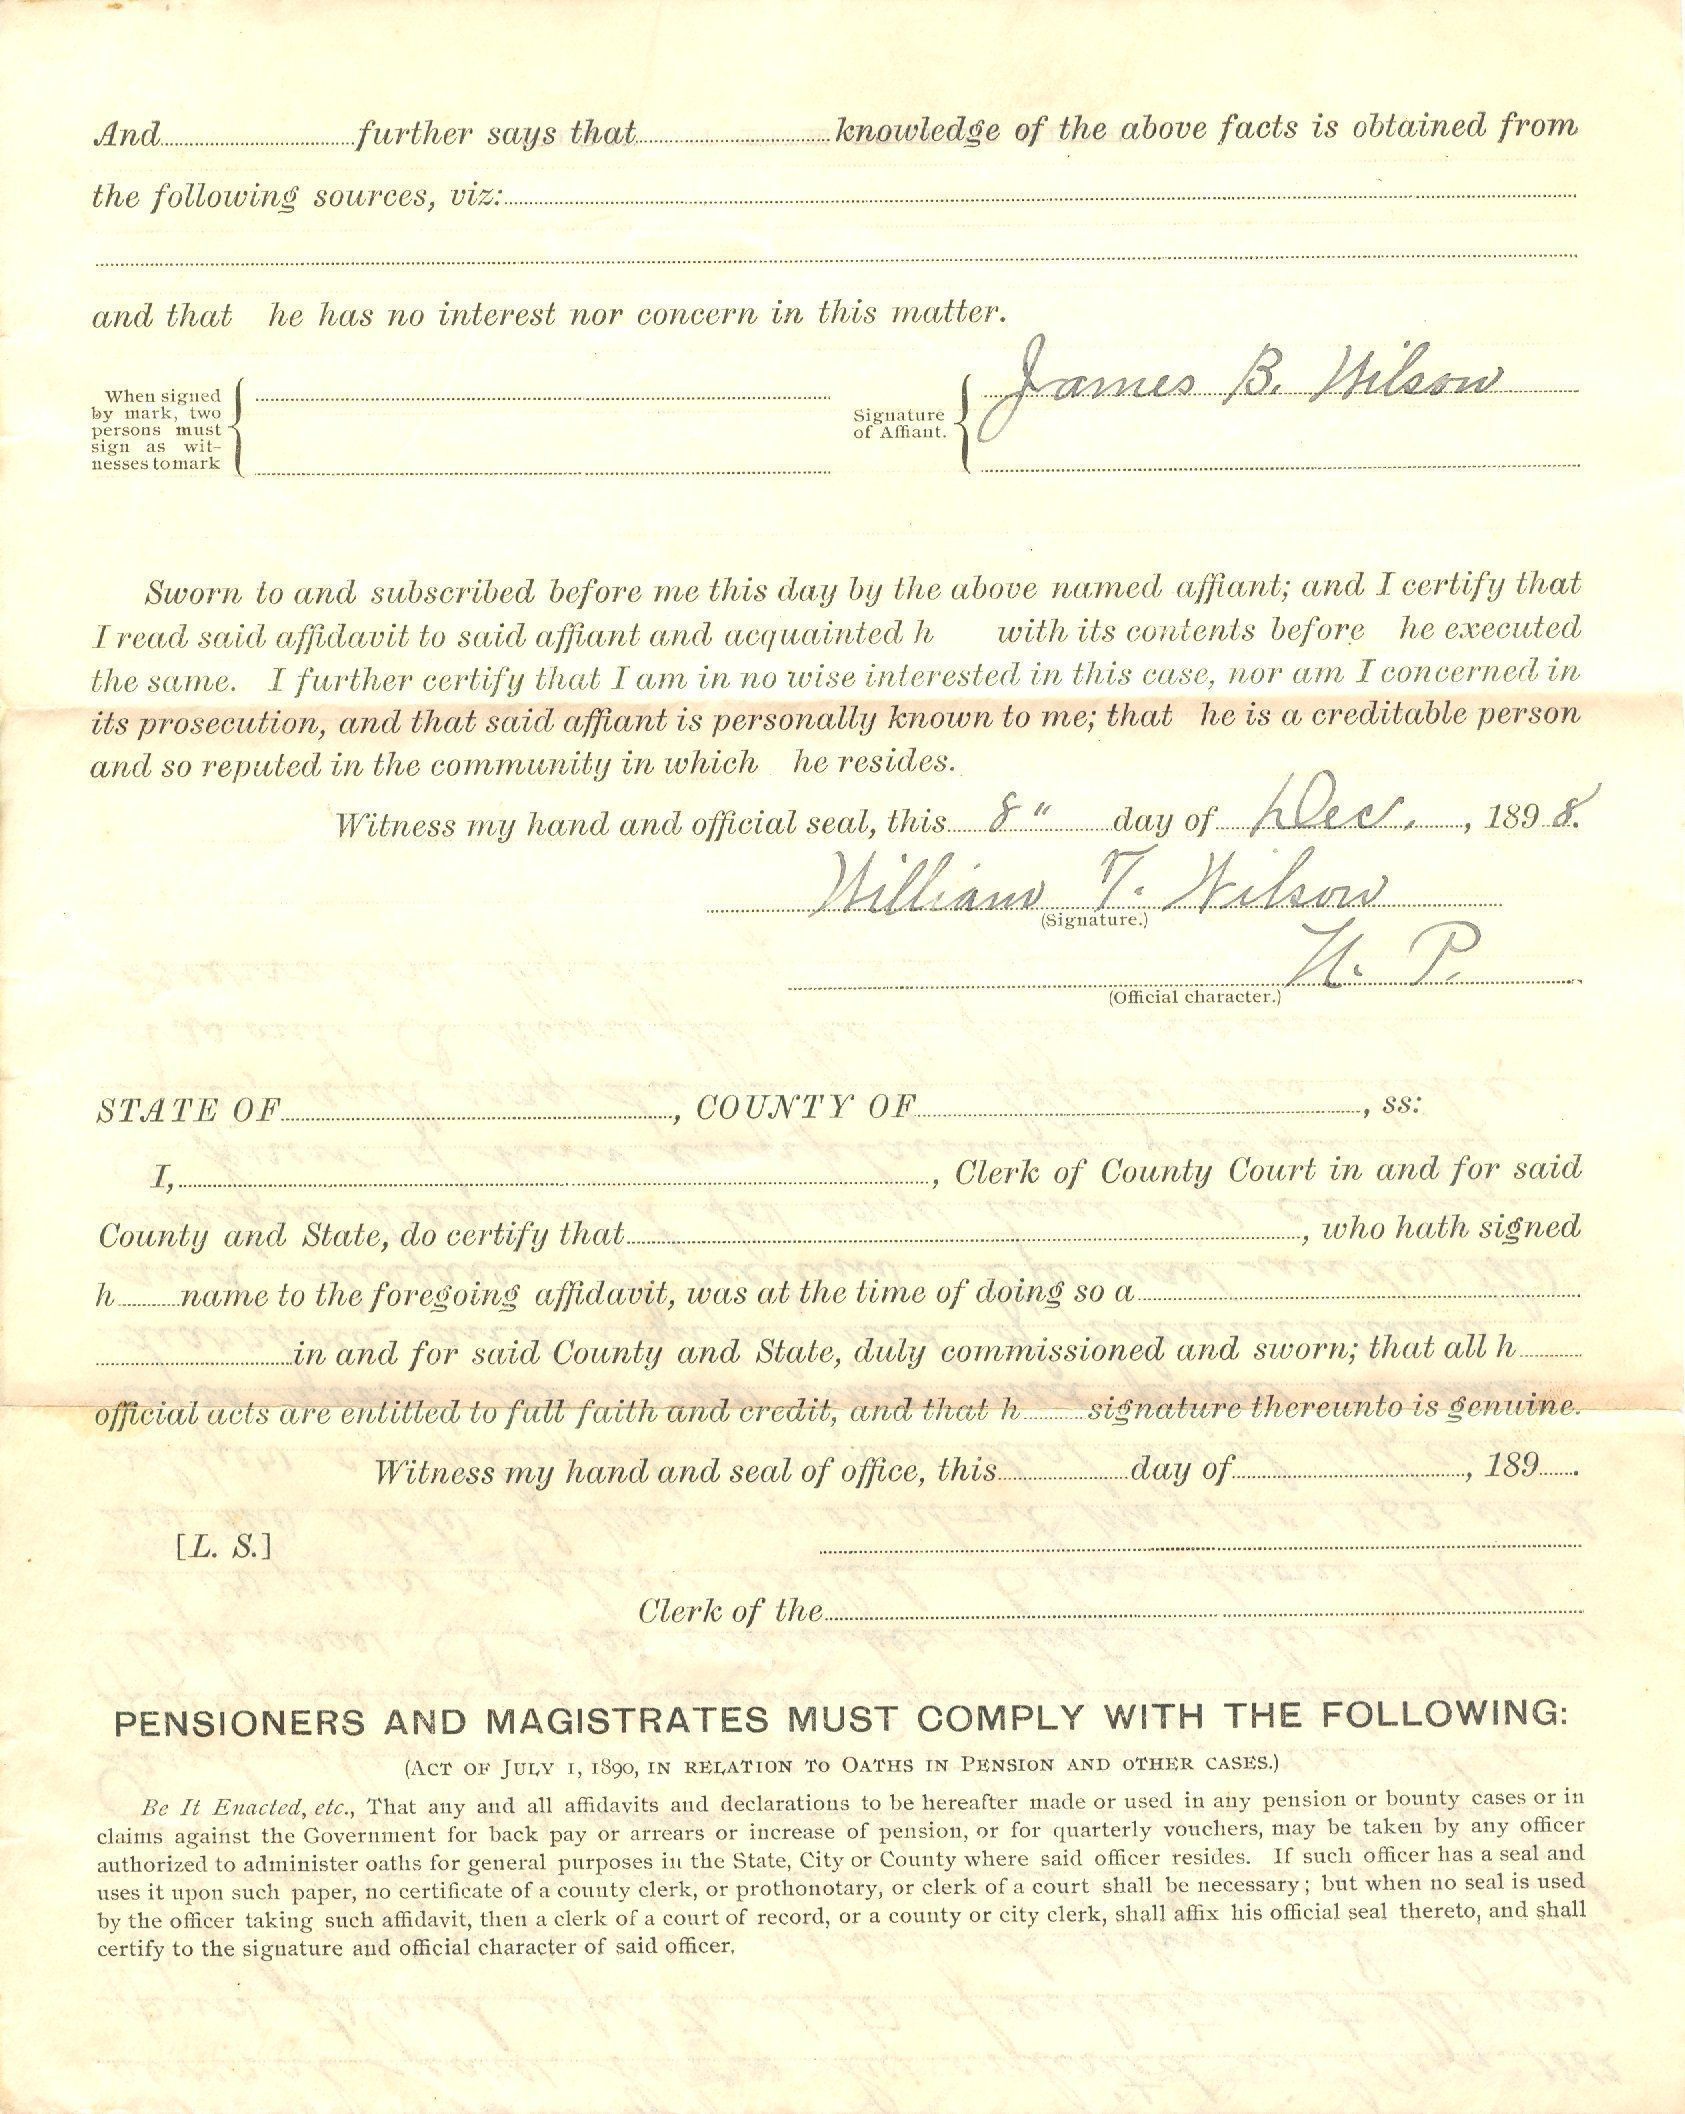 And further says that knowledge of the above facts is obtained from
the following sources, viz:
and that he has no interest nor concern in this matter.
When signed
by mark, two
persons must
sign as wit-
nesses to mark
Signature
of Affiant.
James B. Wilson
Sworn to and subscribed before me this day by the above named affiant; and I certify that
I read said affidavit to said affiant and acquainted h with its contents before he executed
the same. I further certify that I am in no wise interested in this case, nor am I concerned in
its prosecution, and that said affiant is personally known to me; that he is a creditable person
and so reputed in the community in which he resides.
Witness my hand and official seal, this 8" day of Dec., 1898.
William T. Wilson
(Signature.)
N. P.
(Official character.)
STATE OF , COUNTY OF , ss:
I, , Clerk of County Court in and for said
County and State, do certify that , who hath signed
h name to the foregoing affidavit, was at the time of doing so a
in and for said County and State, duly commissioned and sworn; that all h
official acts are entitled to full faith and credit, and that h signature thereunto is genuine.
Witness my hand and seal of office, this day of , 189 .
[L. S.]
Clerk of the
PENSIONERS AND MAGISTRATES MUST COMPLY WITH THE FOLLOWING:
(ACT OF JULY 1, 1890, IN RELATION TO OATHS IN PENSION AND OTHER CASES.)
Be It Enacted, etc., That any and all affidavits and declarations to be hereafter made or used in any pension or bounty cases or in
claims against the Government for back pay or arrears or increase of pension, or for quarterly vouchers, may be taken by any officer
authorized to administer oaths for general purposes in the State, City or County where said officer resides. If such officer has a seal and
uses it upon such paper, no certificate of a county clerk, or prothonotary, or clerk of a court shall be necessary; but when no seal is used
by the officer taking such affidavit, then a clerk of a court of record, or a county or city clerk, shall affix his official seal thereto, and shall
certify to the signature and official character of said officer.